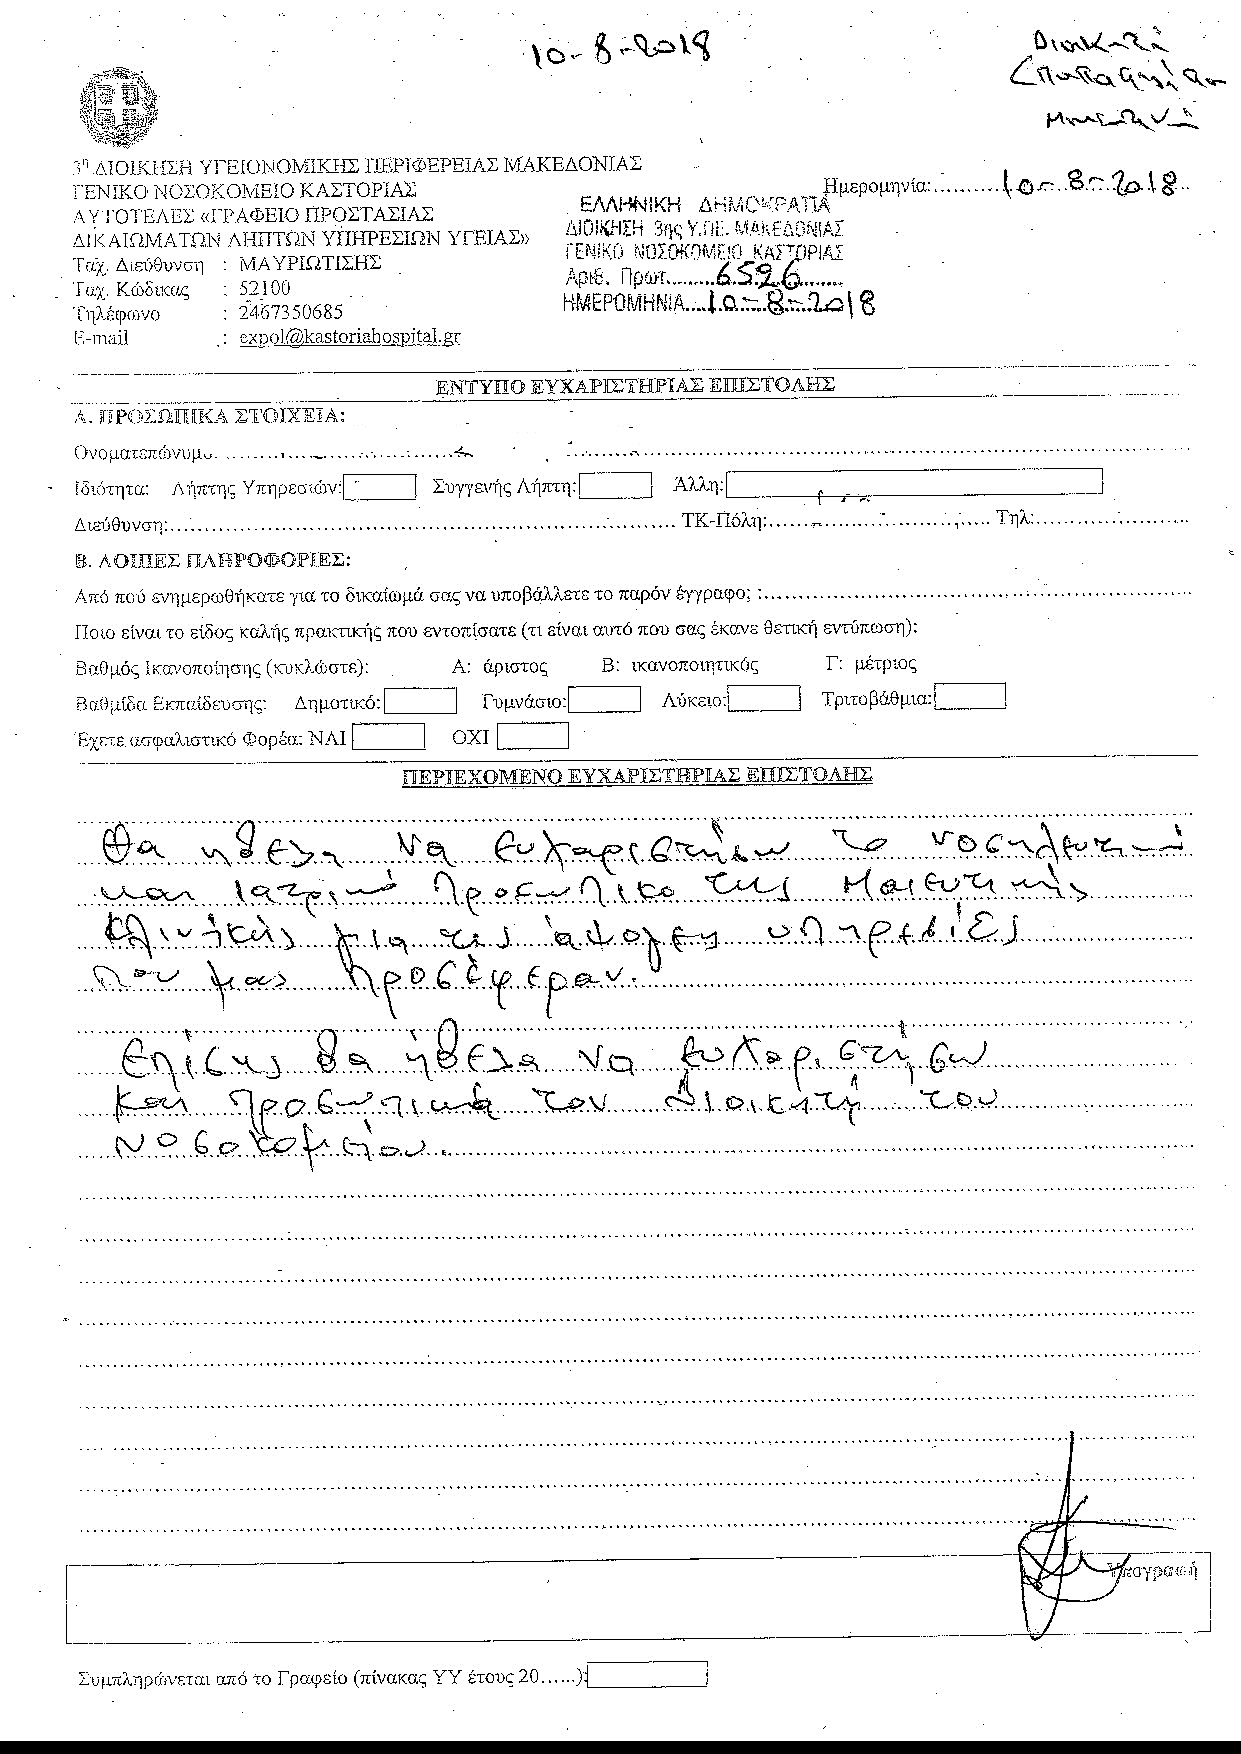 10-8-2018
3η ΔΙΟΙΚΗΣΗ ΥΓΕΙΟΝΟΜΙΚΗΣ ΠΕΡΙΦΕΡΕΙΑΣ ΜΑΚΕΔΟΝΙΑΣ
ΓΕΝΙΚΟ ΝΟΣΟΚΟΜΕΙΟ ΚΑΣΤΟΡΙΑΣ
ΑΥΤΟΤΕΛΕΣ «ΓΡΑΦΕΙΟ ΠΡΟΣΤΑΣΙΑΣ
ΔΙΚΑΙΩΜΑΤΩΝ ΛΗΠΤΩΝ ΥΠΗΡΕΣΙΩΝ ΥΓΕΙΑΣ»
Ταχ. Διεύθυνση : ΜΑΥΡΙΩΤΙΣΗΣ
Ταχ. Κώδικας : 52100
Τηλέφωνο : 2467350685
E-mail : expol@kastoriahospital.gr
Ημερομηνία:..........10-8-2018..
ΕΛΛΗΝΙΚΗ ΔΗΜΟΚΡΑΤΙΑ
ΔΙΟΙΚΗΣΗ 3ης Υ.ΠΕ. ΜΑΚΕΔΟΝΙΑΣ
ΓΕΝΙΚΟ ΝΟΣΟΚΟΜΕΙΟ ΚΑΣΤΟΡΙΑΣ
Αριθ. Πρωτ........6526.......
ΗΜΕΡΟΜΗΝΙΑ....10-8-2018
ΕΝΤΥΠΟ ΕΥΧΑΡΙΣΤΗΡΙΑΣ ΕΠΙΣΤΟΛΗΣ
Α. ΠΡΟΣΩΠΙΚΑ ΣΤΟΙΧΕΙΑ:
Ονοματεπώνυμο
Ιδιότητα: Λήπτης Υπηρεσιών: Συγγενής Λήπτη: Άλλη:
Διεύθυνση: ΤΚ-Πόλη: Τηλ:
Β. ΛΟΙΠΕΣ ΠΛΗΡΟΦΟΡΙΕΣ:
Από πού ενημερωθήκατε για το δικαίωμά σας να υποβάλλετε το παρόν έγγραφο; :
Ποιο είναι το είδος καλής πρακτικής που εντοπίσατε (τι είναι αυτό που σας έκανε θετική εντύπωση):
Βαθμός Ικανοποίησης (κυκλώστε): Α: άριστος Β: ικανοποιητικός Γ: μέτριος
Βαθμίδα Εκπαίδευσης: Δημοτικό: Γυμνάσιο: Λύκειο: Τριτοβάθμια:
Έχετε ασφαλιστικό Φορέα: ΝΑΙ ΟΧΙ
ΠΕΡΙΕΧΟΜΕΝΟ ΕΥΧΑΡΙΣΤΗΡΙΑΣ ΕΠΙΣΤΟΛΗΣ
Θα ηθελα να ευχαριστήσω το νοσηλευτικό
και Ιατρικό Προσωπικο της Μαιευτικής
Κλινικής για τις άψογες υπηρεσίες
που μας προσέφεραν.
Επίσης θα ήθελα να ευχαριστήσω
και προσωπικά τον Διοικητή του
Νοσοκομείου.
Υπογραφή
Συμπληρώνεται από το Γραφείο (πίνακας ΥΥ έτους 20......):